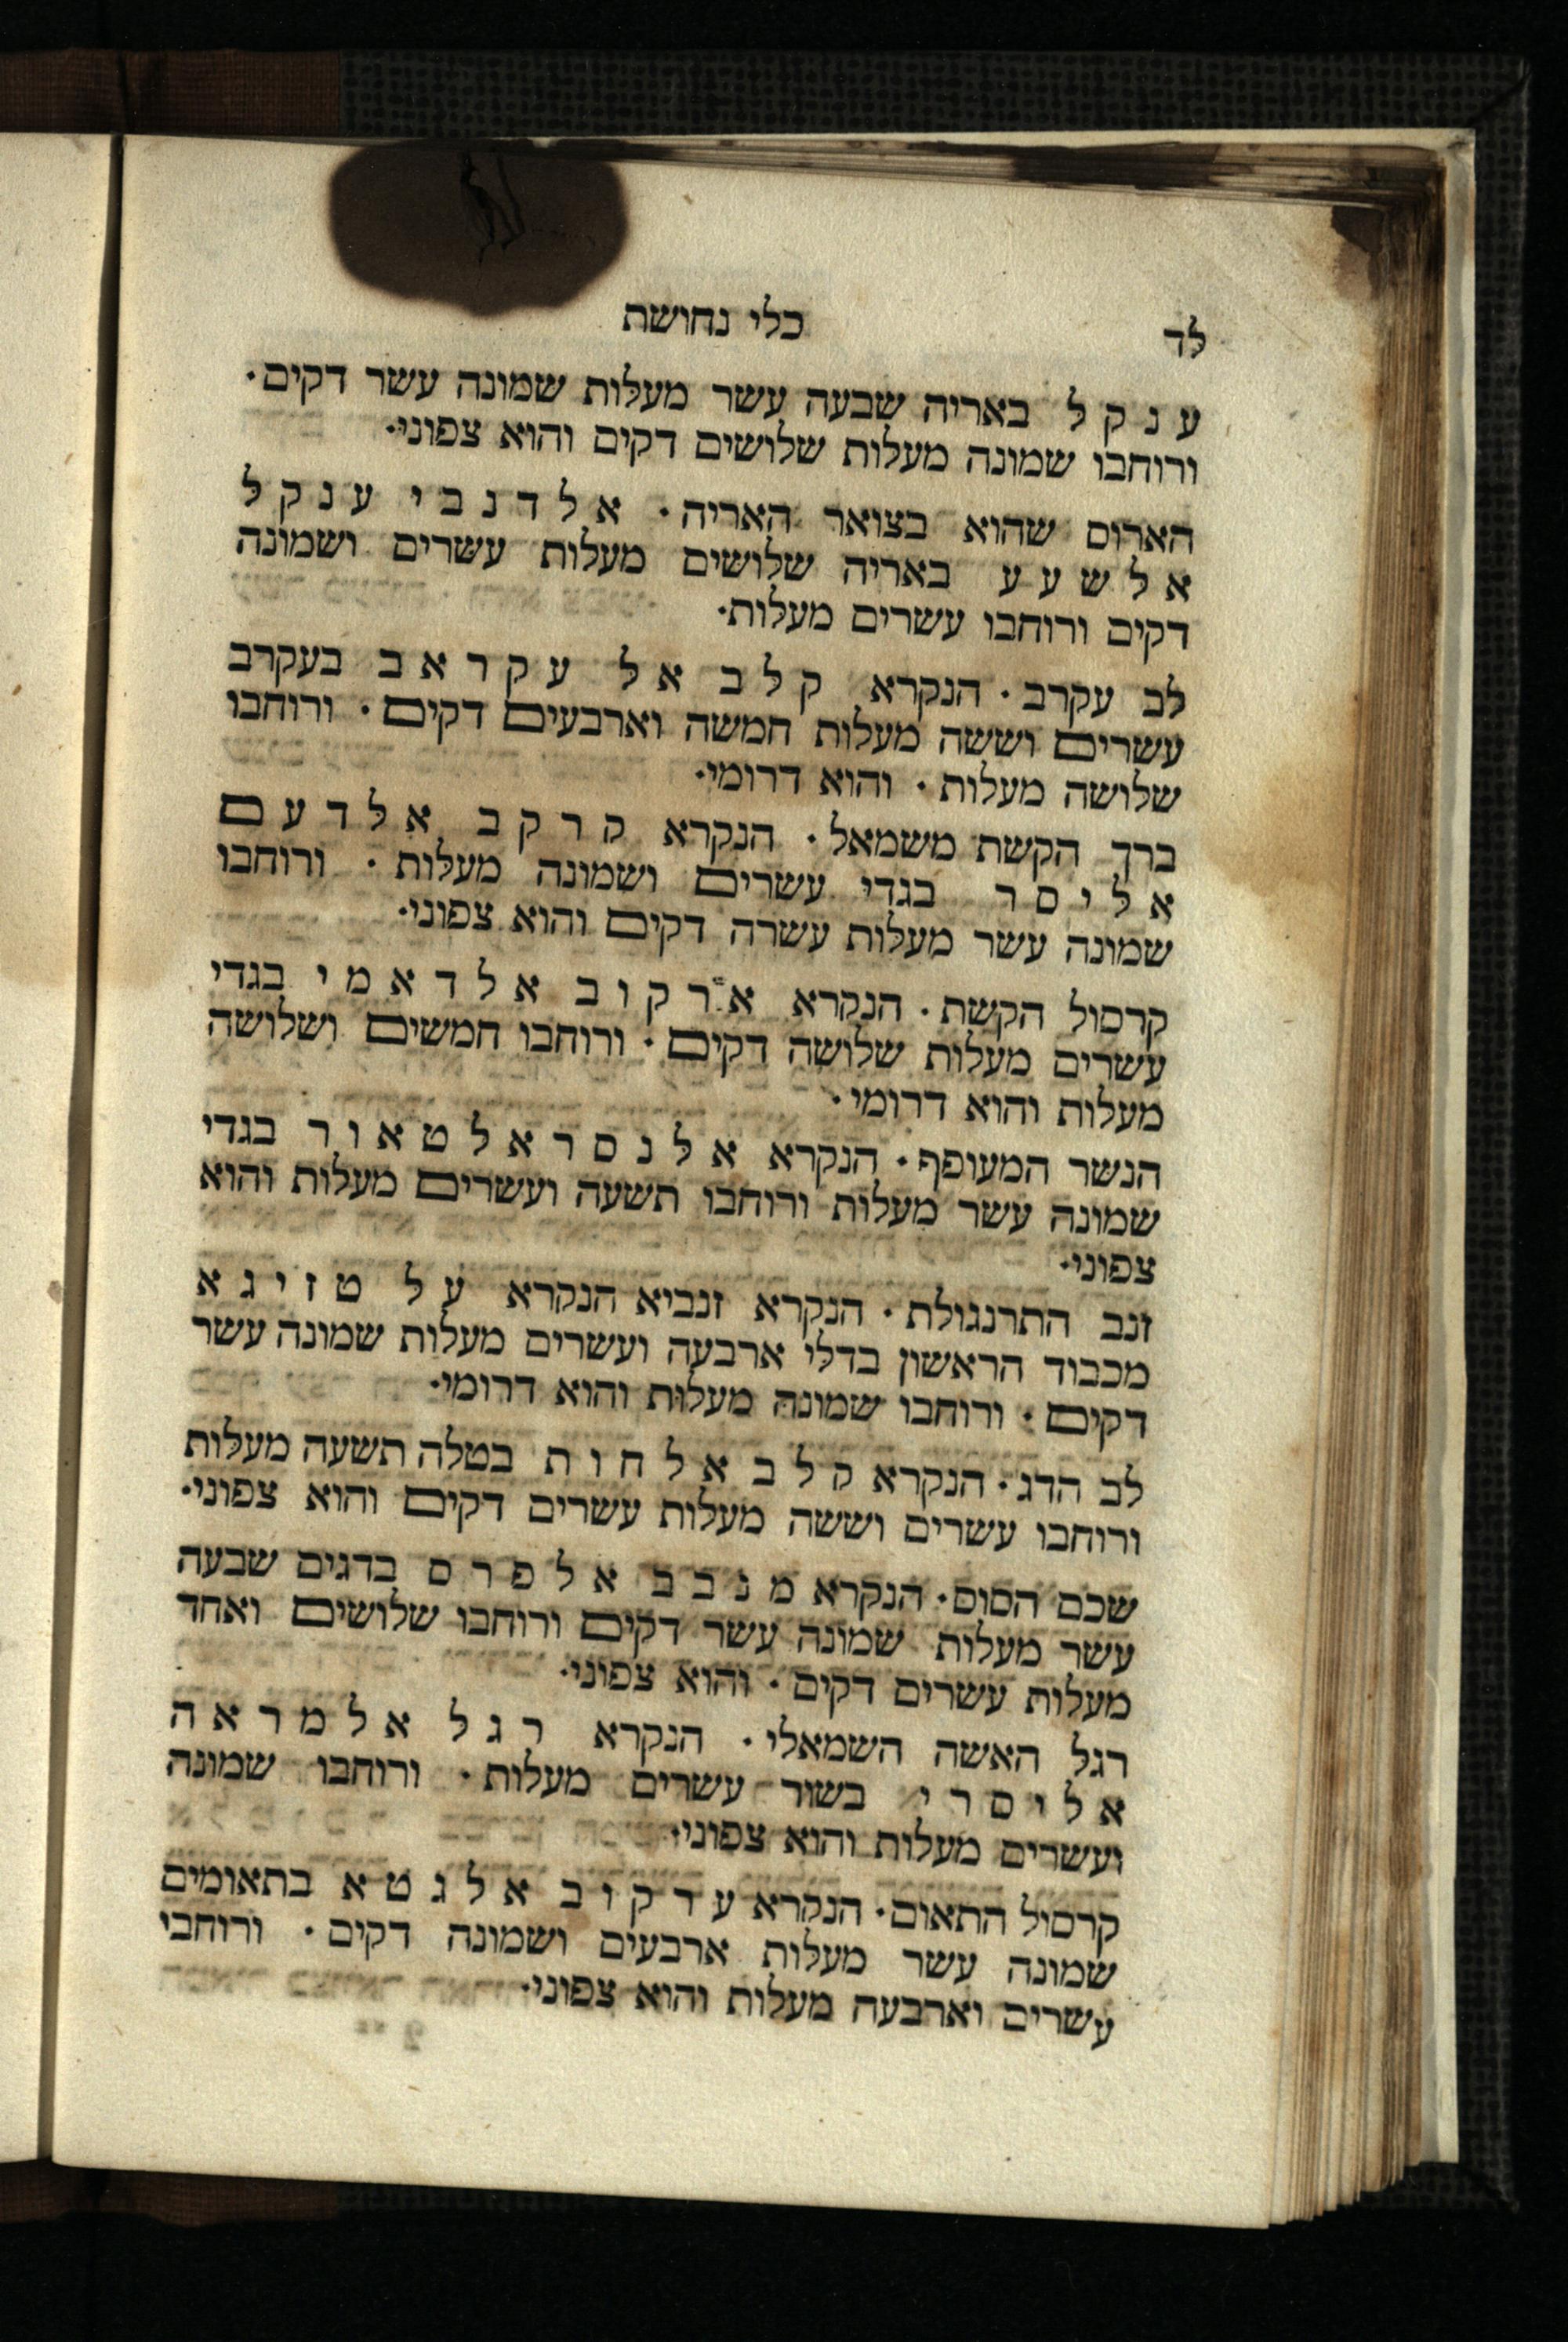 לד
כלי נחושת
ע נ ק ל באריה שבעה עשר מעלות שמונה עשר דקים·
ורוחבו שמונה מעלות שלושים דקים והוא צפוני·
הארוס שהוא בצואר האריה· א ל ד נ ב י ע נ ק ל
א ל ש ע ע באריה שלושים מעלות עשרים ושמונה
דקים ורוחבו עשרים מעלות·
לב עקרב· הנקרא ק ל ב א ל ע ק ר א ב בעקרב
עשרים וששה מעלות חמשה וארבעים דקים· ורוחבו
שלושה מעלות· והוא דרומי·
ברך הקשת משמאל· הנקרא ק ר ק ב א ל ד ע ם
א ל י ס ר בגדי עשרים ושמונה מעלות· ורוחבו
שמונה עשר מעלות עשרה דקים והוא צפוני·
קרסול הקשת· הנקרא א ר ק ו ב א ל ד א מ י בגדי
עשרים מעלות שלושה דקים· ורוחבו חמשים ושלושה
מעלות והוא דרומי·
הנשר המעופף· הנקרא א ל נ ס ר א ל ט א ו ר בגדי
שמונה עשר מעלות ורוחבו תשעה ועשרים מעלות והוא
צפוני·
זנב התרנגולת· הנקרא זנביא הנקרא ע ל ט ז י ג א
מכבוד הראשון בדלי ארבעה ועשרים מעלות שמונה עשר
דקים· ורוחבו שמונה מעלות והוא דרומי·
לב הדג· הנקרא ק ל ב א ל ח ו ת בטלה תשעה מעלות
ורוחבו עשרים וששה מעלות עשרים דקים והוא צפוני·
שכם הסוס· הנקרא מ נ כ ב א ל פ ר ס בדגים שבעה
עשר מעלות שמונה עשר דקים ורוחבו שלושים ואחד
מעלות עשרים דקים· והוא צפוני·
רגל האשה השמאלי· הנקרא ר ג ל א ל מ ר א ה
א ל י ס ר י בשור עשרים מעלות· ורוחבו שמונה
ועשרים מעלות והוא צפוני·
קרסול התאום· הנקרא ע ד ק ו ב א ל ג ט א בתאומים
שמונה עשר מעלות ארבעים ושמונה דקים· ורוחבי
עשרים וארבעה מעלות והוא צפוני·